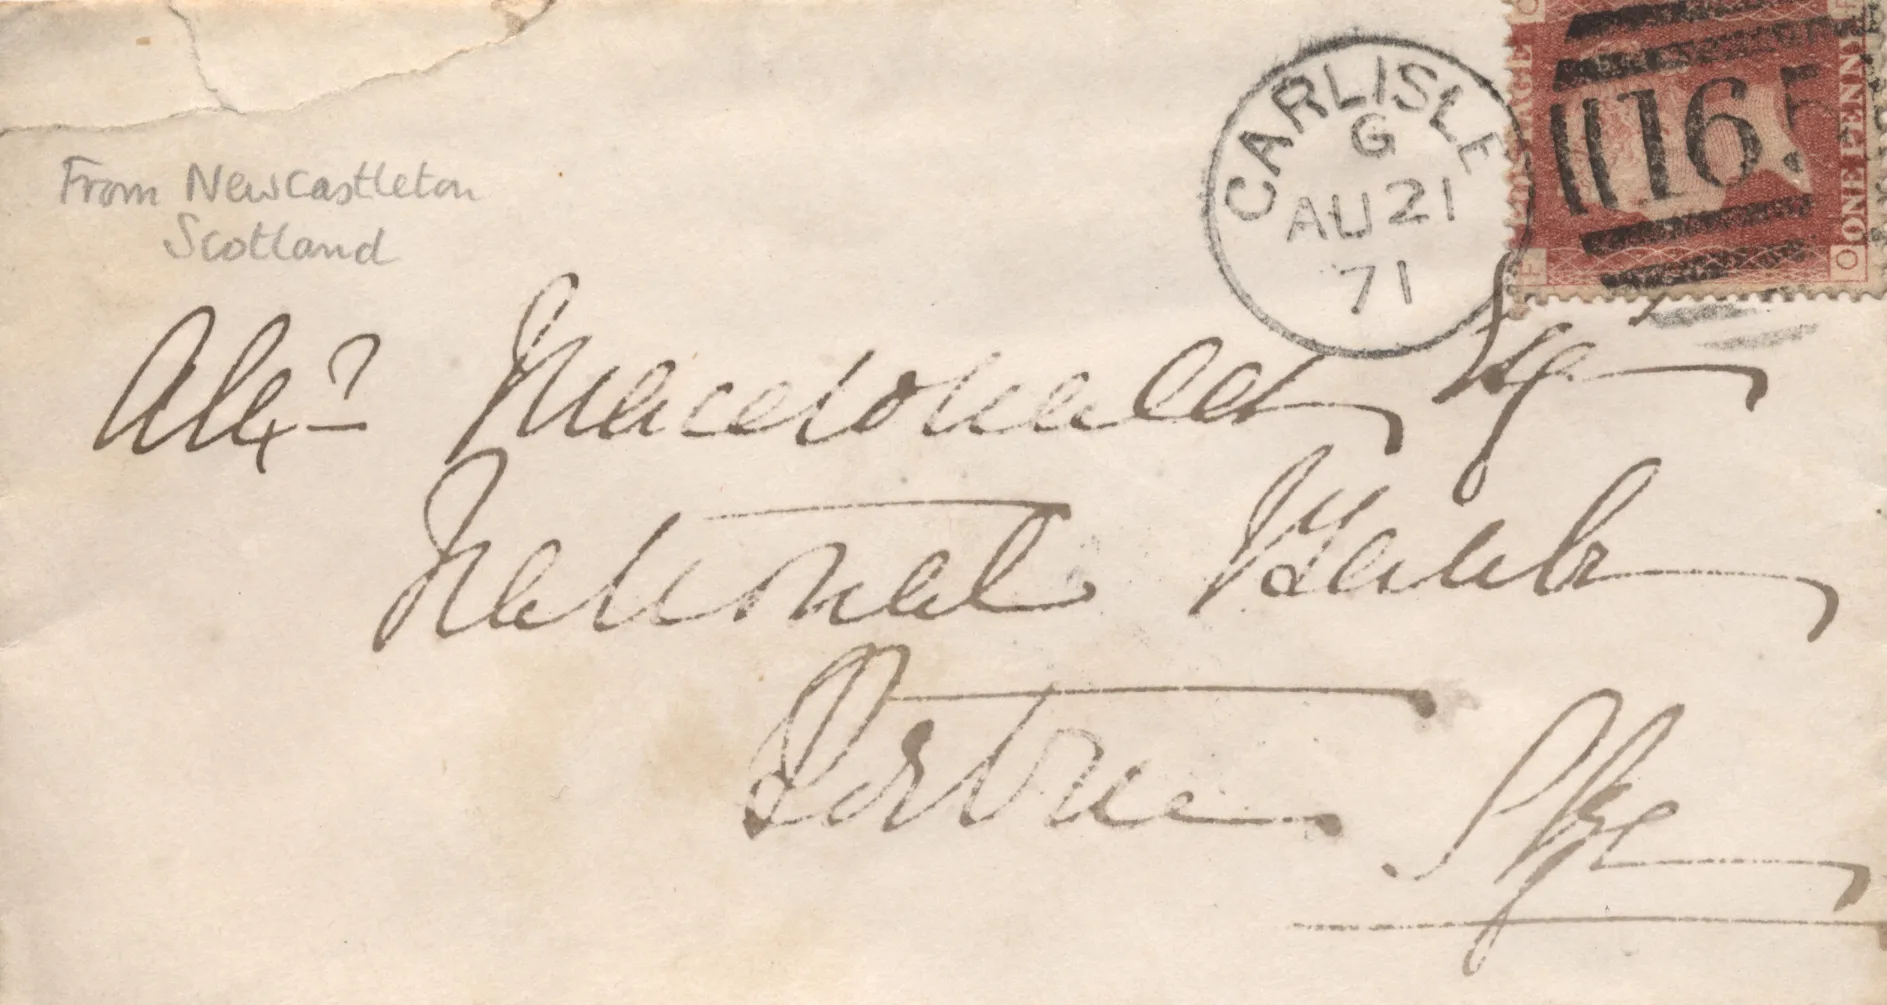 CARLISLE
G
AU 21
71
POSTAGE
ONE PENNY
165
F
O
From Newcastleton
Scotland
Alexr Macdonald Esqr
National Bank
Portree Skye